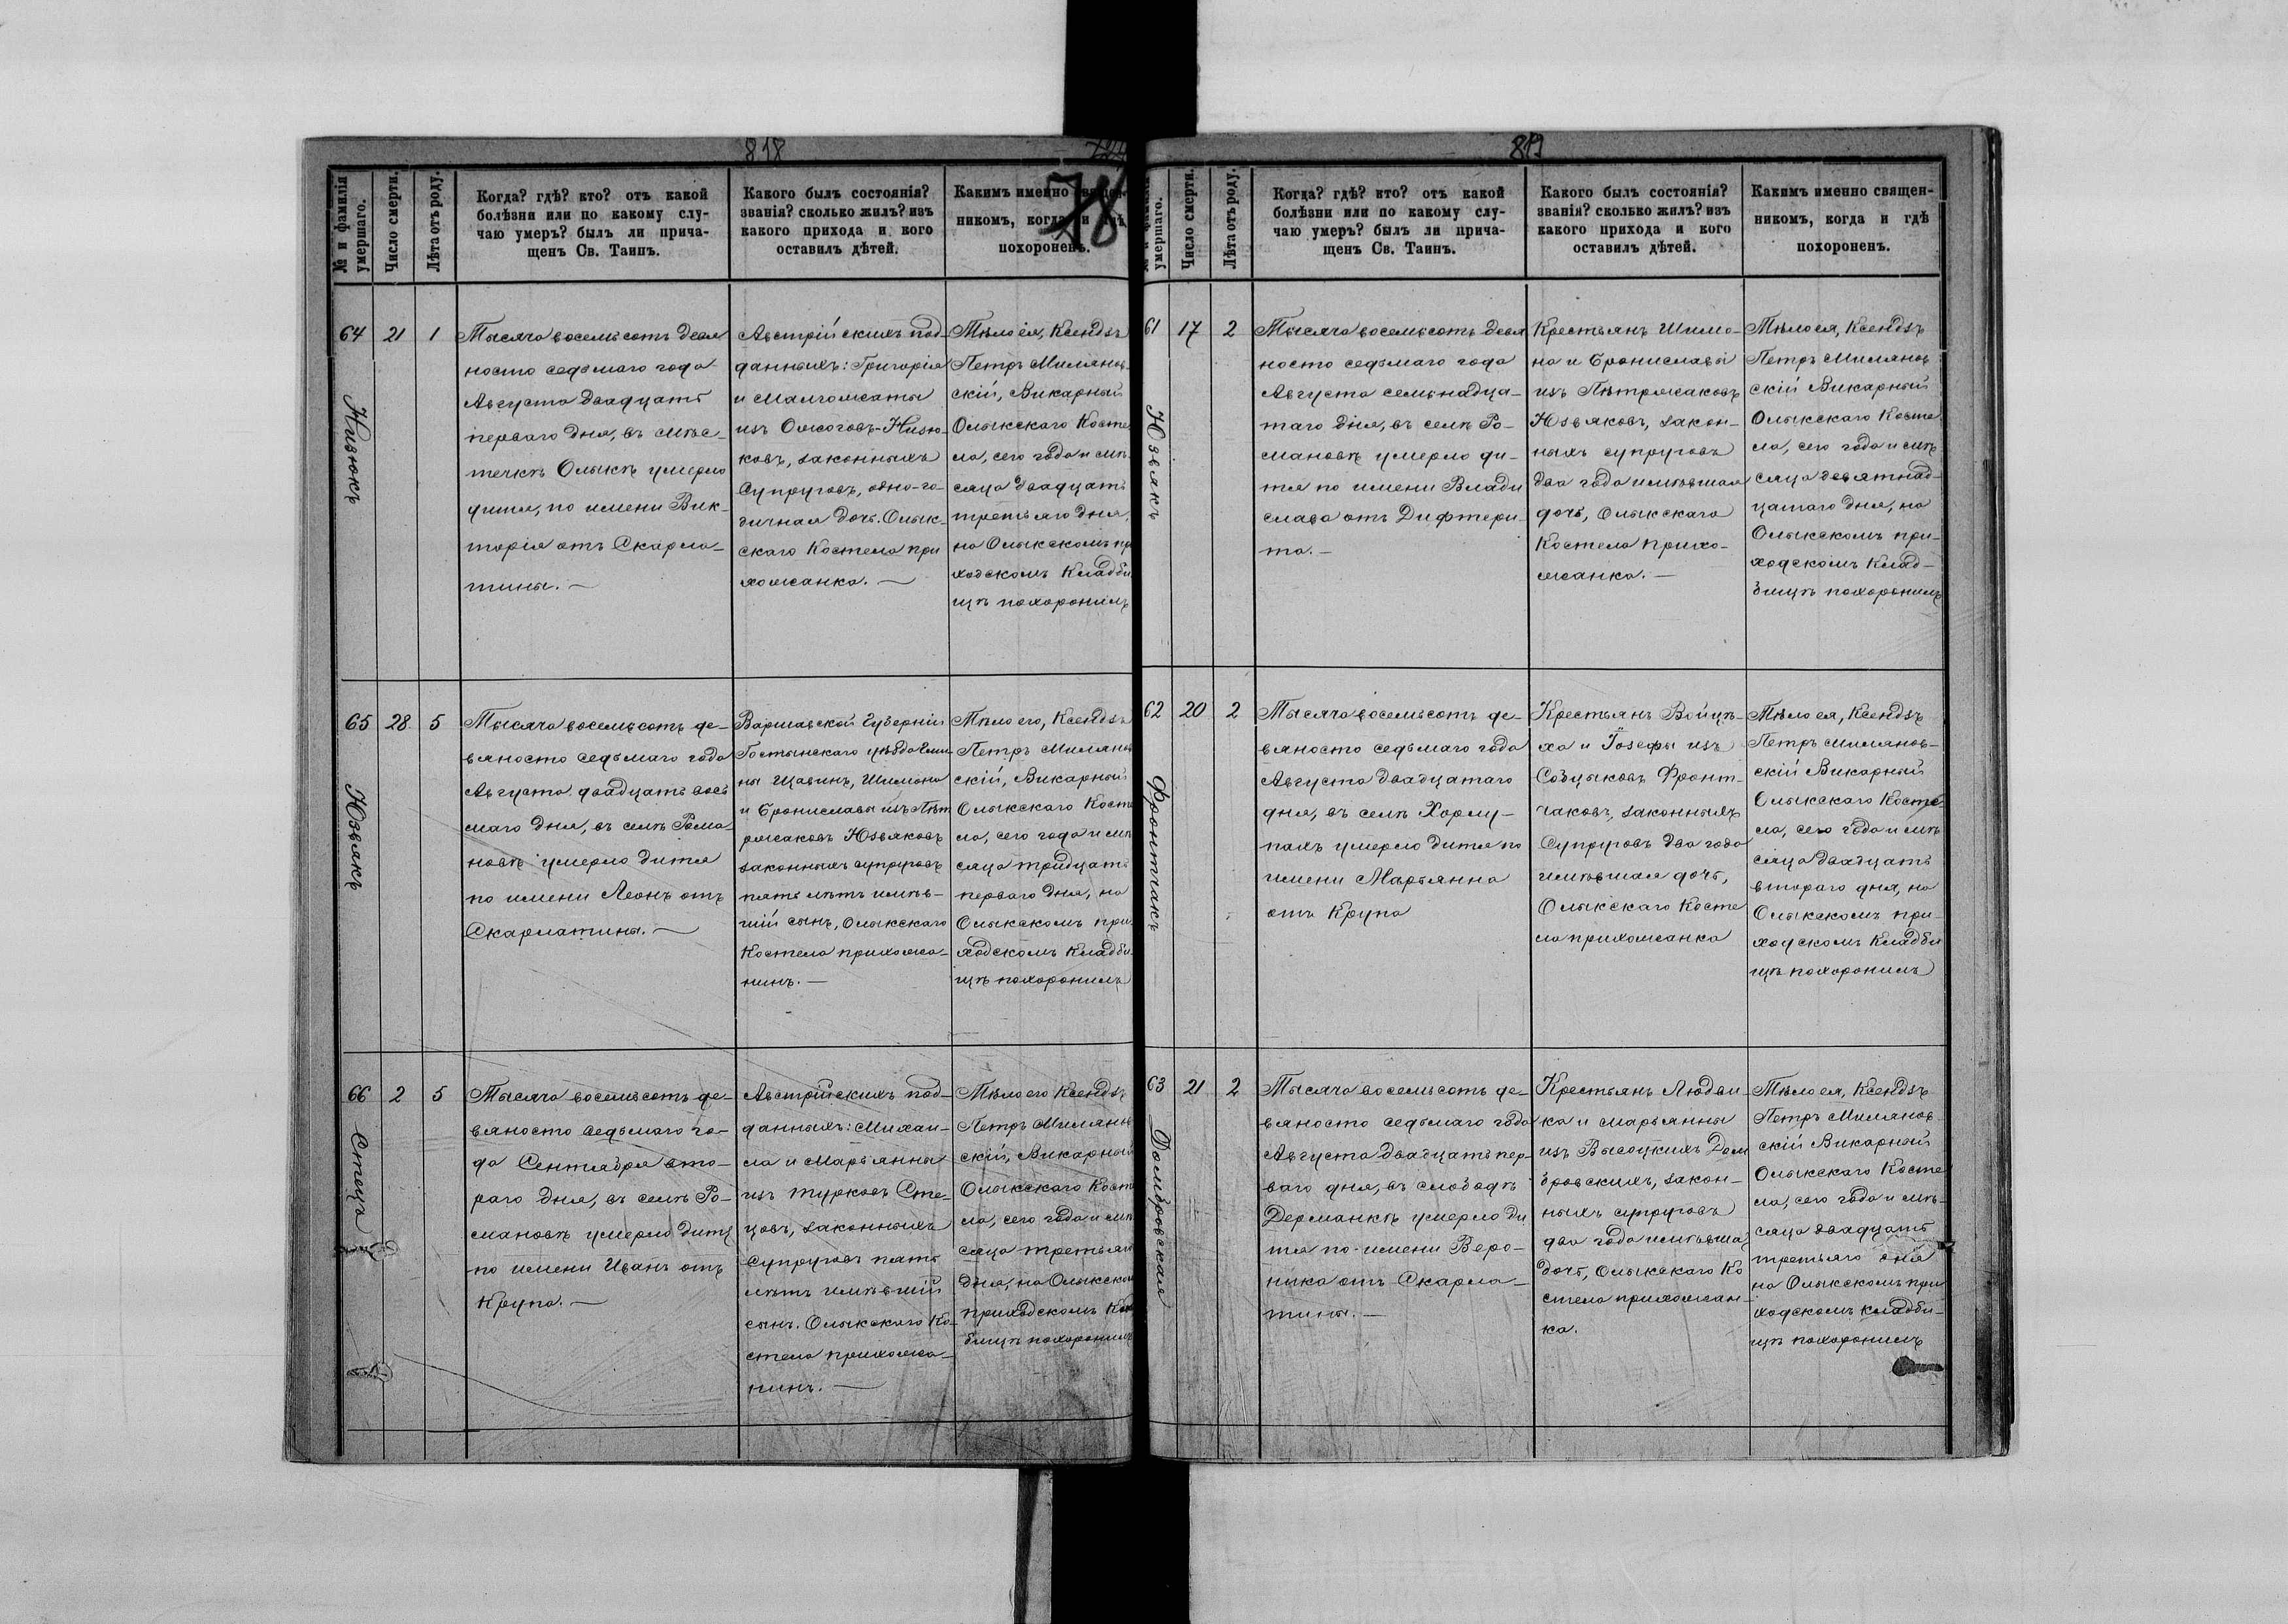 818
№ и фамилія умершаго.
Число смерти.
Лѣта отъ роду.
Когда? гдѣ? кто? отъ какой
болѣзни или по какому слу-
чаю умеръ? былъ ли прича-
щенъ Св. Таинъ.
Какого былъ состоянія?
званія? сколько жилъ? изъ
какого прихода и кого
оставилъ дѣтей.
Какимъ именно священ-
никомъ, когда и гдѣ
похороненъ.
64
21
1
Низюкъ
Тысяча восемьсотъ девя
носто седьмаго года
Августа двадцать
перваго дня, въ мѣс-
течкѣ Олыкѣ умерло
дитя, по имени Вик-
торія отъ Скарла-
тины. —
Австрійскихъ под-
данныхъ: Григорія
и Малгожаты
изъ Ожоговъ-Низю-
ковъ, законныхъ
Супруговъ, одно-го-
дичная дочь. Олык-
скаго Костела при
хожанка. —
Тѣло ея, Ксендзъ
Петръ Милянов-
скій, Викарный
Олыкскаго Косте
ла, сего года и мѣ
сяца двадцать
третьяго дня,
на Олыкскомъ пр
ходскомъ Кладби
щѣ похоронилъ
65
28
5
Юзвякъ
Тысяча восемьсотъ де-
вяносто седьмаго года
Августа двадцать вось
маго дня, въ селѣ Рома-
новкѣ умерло дитя
по имени Леонъ отъ
Скарлатины. —
Варшавской Губерніи
Гостынскаго уѣзда Гми-
ны Щавинъ, Шимона
и Брониславы изъ Пѣт
ржаковъ Юзвяковъ
законныхъ супруговъ
пять лѣтъ имѣв-
шій сынъ, Олыкскаго
Костела прихожа-
нинъ. —
Тѣло его, Ксендзъ
Петръ Милянов
скій, Викарный
Олыкскаго Косте
ла, сего года и мѣ
сяца тридцать
перваго дня, на
Олыкскомъ при
ходскомъ Кладби
щѣ похоронилъ
66
2
5
Стецъ
Тысяча восемьсотъ де-
вяносто седьмаго го-
да Сентября вто-
раго дня, въ селѣ Ро-
мановкѣ умерло дитя
по имени Иванъ отъ
Крупа. —
Австрійскихъ под-
данныхъ: Михаи-
ла и Марьянны
изъ Турковъ Сте-
цовъ, законныхъ
Супруговъ пять
лѣтъ имѣвшій
сынъ. Олыкскаго Ко-
стела прихожа-
нинъ. —
Тѣло его Ксендзъ
Петръ Милянов
скій, Викарный
Олыкскаго Косте
ла, сего года и мѣ
сяца третьяго
дня, на Олыкском
приходскомъ Клад
бищѣ похоронилъ
819
умершаго.
Число смерти.
Лѣта отъ роду.
Когда? гдѣ? кто? отъ какой
болѣзни или по какому слу-
чаю умеръ? былъ ли прича-
щенъ Св. Таинъ.
Какого былъ состоянія?
званія? сколько жилъ? изъ
какого прихода и кого
оставилъ дѣтей.
Какимъ именно священ-
никомъ, когда и гдѣ
похороненъ.
61
17
2
Юзвякъ
Тысяча восемьсотъ девя
носто седьмаго года
Августа семьнадца-
таго дня, въ селѣ Ро-
мановкѣ умерло ди-
тя по имени Влади
слава отъ Дифтери-
та. —
Крестьянъ Шимо-
на и Брониславы
изъ Пѣтржаковъ
Юзвяковъ, закон-
ныхъ супруговъ
два года имѣвшая
дочь, Олыкскаго
Костела прихо-
жанка. —
Тѣло ея, Ксендзъ
Петръ Милянов
скій Викарный
Олыкскаго Косте
ла, сего года и мѣ
сяца девятнад-
цатаго дня, на
Олыкскомъ при-
ходскомъ Клад-
бищѣ похоронилъ
62
20
2
Фронтчакъ
Тысяча восемьсотъ де-
вяносто седьмаго года
Августа двадцатаго
дня, въ селѣ Хорлу-
пахъ умерло дитя по
имени Марьянна
отъ Крупа
Крестьянъ Войцѣ-
ха и Іозефы изъ
Собцыковъ Фронт-
чаковъ, законныхъ
Супруговъ два года
имѣвшая дочь,
Олыкскаго Косте
ла прихожанка
Тѣло ея, Ксендзъ
Петръ Милянов-
скій Викарный
Олыкскаго Косте-
ла, сего года и мѣ
сяца двадцать
втораго дня, на
Олыкскомъ при-
ходскомъ Кладби
щѣ похоронилъ
63
21
2
Домбровская
Тысяча восемьсотъ де-
вяносто седьмаго года
Августа двадцать пер-
ваго дня, въ слободѣ
Дерманкѣ умерло ди
тя по имени Веро-
ника отъ Скарла-
тины. —
Крестьянъ Людви-
ка и Марьянны
изъ Высоцкихъ Дом
бровскихъ, закон-
ныхъ супруговъ
два года имѣвшая
дочь, Олыкскаго Ко
стела прихожан-
ка.
Тѣло ея, Ксендзъ
Петръ Милянов-
скій Викарный
Олыкскаго Косте
ла, сего года и мѣ-
сяца двадцать
третьяго дня
на Олыкскомъ при
ходскомъ кладби-
щѣ похоронилъ